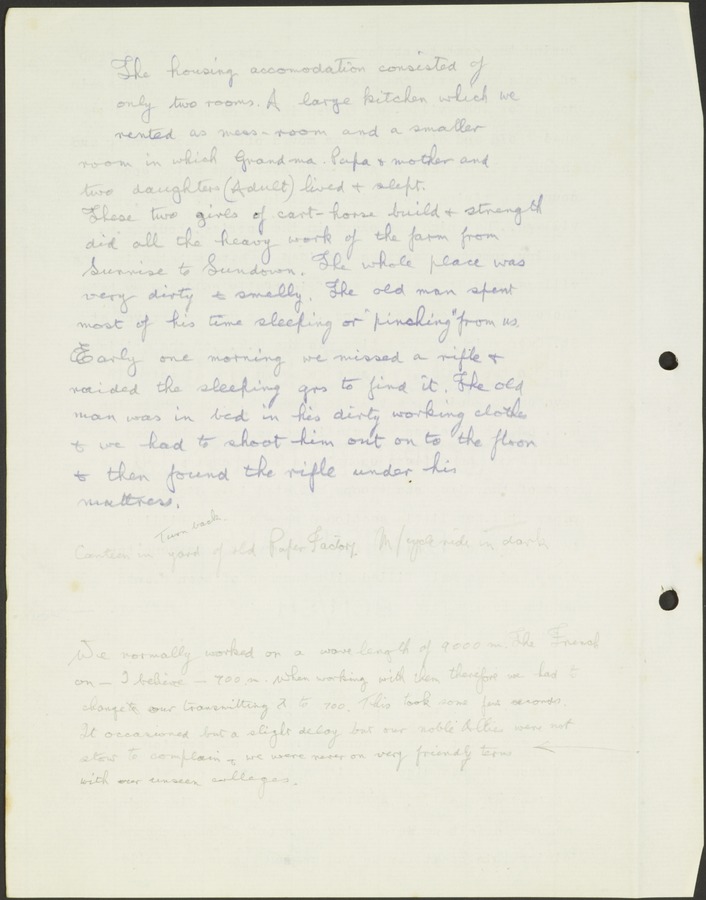 The housing accomodation consisted of
only two rooms. A large kitchen which we
rented as mess-room and a smaller
room in which Grandma. Papa & mother and
two daughters (Adult) lived & slept.
These two girls of cart-horse build & strength
did all the heavy work of the farm from
Sunrise to Sundown. The whole place was
very dirty & smelly. The old man spent
most of his time sleeping or "pinching" from us.
Early one morning we missed a rifle &
raided the sleeping qrs to find it. The old
man was in bed in his dirty working clothes
& we had to shoot him out on to the floor
& then found the rifle under his
mattress.
Turn back.
Canteen in yard of old Paper Factory. M/cycle ride in dark
We normally worked on a wave length of 9000 m. The French
on – I believe – 700 m. When working with them therefore we had to
change our transmitting to 700. This took some few seconds.
It occasioned but a slight delay but our noble Allies were not
slow to complain & we were never on very friendly terms
with our unseen collages.